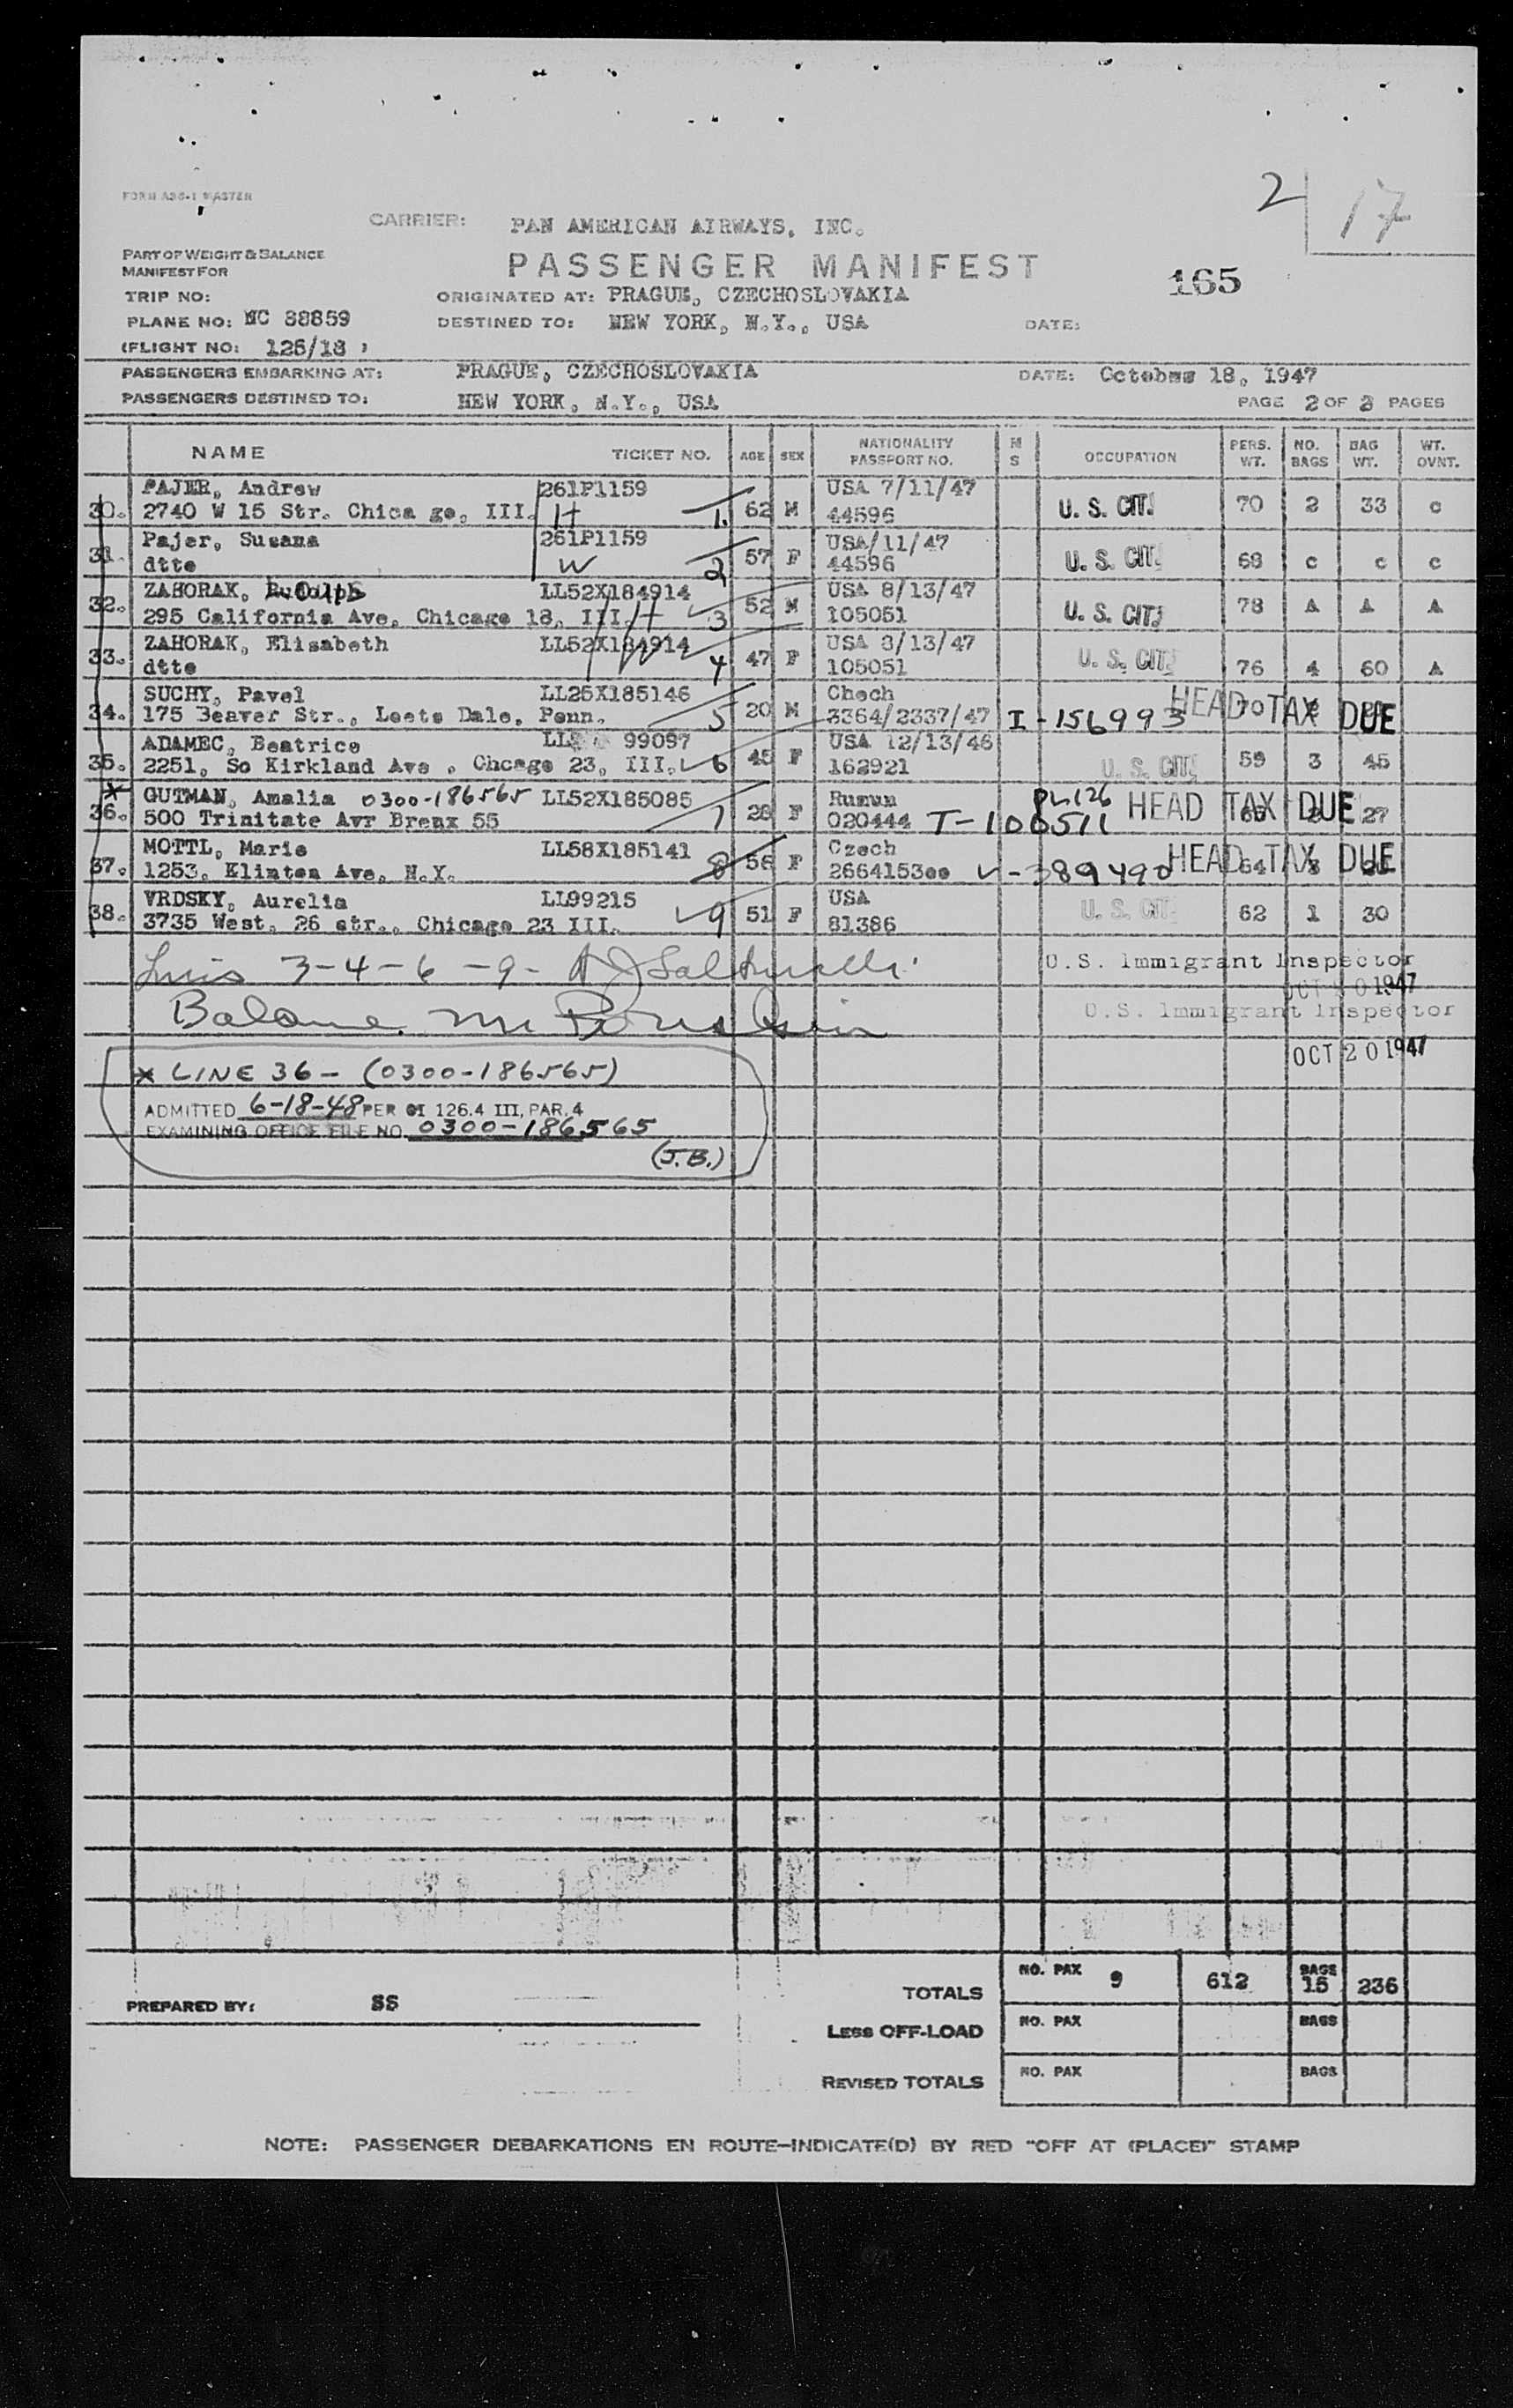 FORM ADS-1 MASTER
2 17
CARRIER: PAN AMERICAN AIRWAYS, INC.
PART OF WEIGHT & BALANCE
MANIFEST FOR
PASSENGER MANIFEST
165
TRIP NO:
ORIGINATED AT: PRAGUE, CZECHOSLOVAKIA
PLANE NO: NC 88859
DESTINED TO: NEW YORK, N.Y., USA
DATE:
(FLIGHT NO: 125/18 )
PASSENGERS EMBARKING AT: PRAGUE, CZECHOSLOVAKIA
DATE: October 18, 1947
PASSENGERS DESTINED TO: NEW YORK, N.Y., USA
PAGE 2 OF 2 PAGES
NAME TICKET NO. AGE SEX NATIONALITY PASSPORT NO. M S OCCUPATION PERS. WT. NO. BAGS BAG WT. WT. OVNT.
30. PAJER, Andrew 261P1159 62 M USA 7/11/47 U. S. CIT. 70 2 33 c
2740 W 15 Str. Chica go, III. H 1. 44596
31. Pajer, Susana 261P1159 57 F USA/11/47 U. S. CIT. 68 c c c
dtto W 2 44596
32. ZAHORAK, Rudolph LL52X184914 52 M USA 8/13/47 U. S. CIT. 78 A A A
295 California Ave, Chicago 18, III. H 3 105051
33. ZAHORAK, Elisabeth LL52X184914 47 F USA 8/13/47 U. S. CIT. 76 4 60 A
dtto W 4 105051
34. SUCHY, Pavel LL25X185146 20 M Chech 70 HEAD TAX DUE
175 Beaver Str., Leets Dale, Penn. 5 3364/2337/47 I-156993
35. ADAMEC, Beatrice 99097 45 F USA 12/13/46 U. S. CIT. 59 3 45
2251, So Kirkland Ave , Chcago 23, III. 6 162921
x
36. GUTMAN, Amalia 0300-186565 LL52X185085 28 F Rumun PL126 HEAD TAX DUE 27
500 Trinitate Avr Brenx 55 7 020444 T-100511
37. MOTTL, Marie LL58X185141 56 F Czech HEAD TAX DUE 64
1253, Klinten Ave, N.Y. 8 2664153oo V-389490
38. VRDSKY, Aurelia LL99215 51 F USA U. S. CIT. 62 1 30
3735 West, 26 str., Chicago 23 III. 9 81386
3-4-6-9-
U.S. Immigrant Inspector
OCT 20 1947
U.S. Immigrant Inspector
OCT 20 1947
x LINE 36 - (0300-186565)
ADMITTED 6-18-48 PER OI 126.4 III, PAR. 4
EXAMINING OFFICE FILE NO. 0300-186565
(J.B.)
TOTALS NO. PAX 9 612 BAGS 15 236
PREPARED BY: SS
LESS OFF-LOAD NO. PAX BAGS
REVISED TOTALS NO. PAX BAGS
NOTE: PASSENGER DEBARKATIONS EN ROUTE-INDICATE(D) BY RED "OFF AT (PLACE)" STAMP